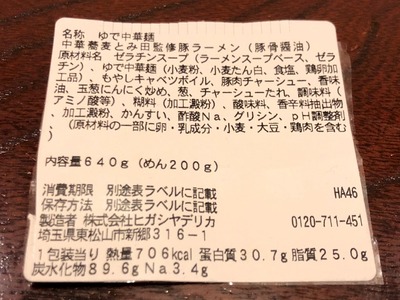 名称 ゆで中華麺
中華蕎麦とみ田監修豚ラーメン(豚骨醤油)
原材料名 ゼラチンスープ(ラーメンスープベース、ゼラ
チン)、ゆで中華麺(小麦粉、小麦たん白、食塩、鶏卵加
工品)、もやしキャベツボイル、豚肉チャーシュー、香味
油、玉葱にんにく炒め、葱、チャーシューたれ、調味料(
アミノ酸等)、糊料(加工澱粉)、酸味料、香辛料抽出物
、加工澱粉、かんすい、酢酸Na、グリシン、pH調整剤
、(原材料の一部に卵・乳成分・小麦・大豆・鶏肉を含む
)
内容量640g(めん200g)
消費期限 別途表ラベルに記載 HA46
保存方法 別途表ラベルに記載
製造者 株式会社ヒガシヤデリカ 0120-711-451
埼玉県東松山市新郷316-1
1包装当り 熱量706kcal 蛋白質30.7g 脂質25.0g
炭水化物89.6g Na3.4g